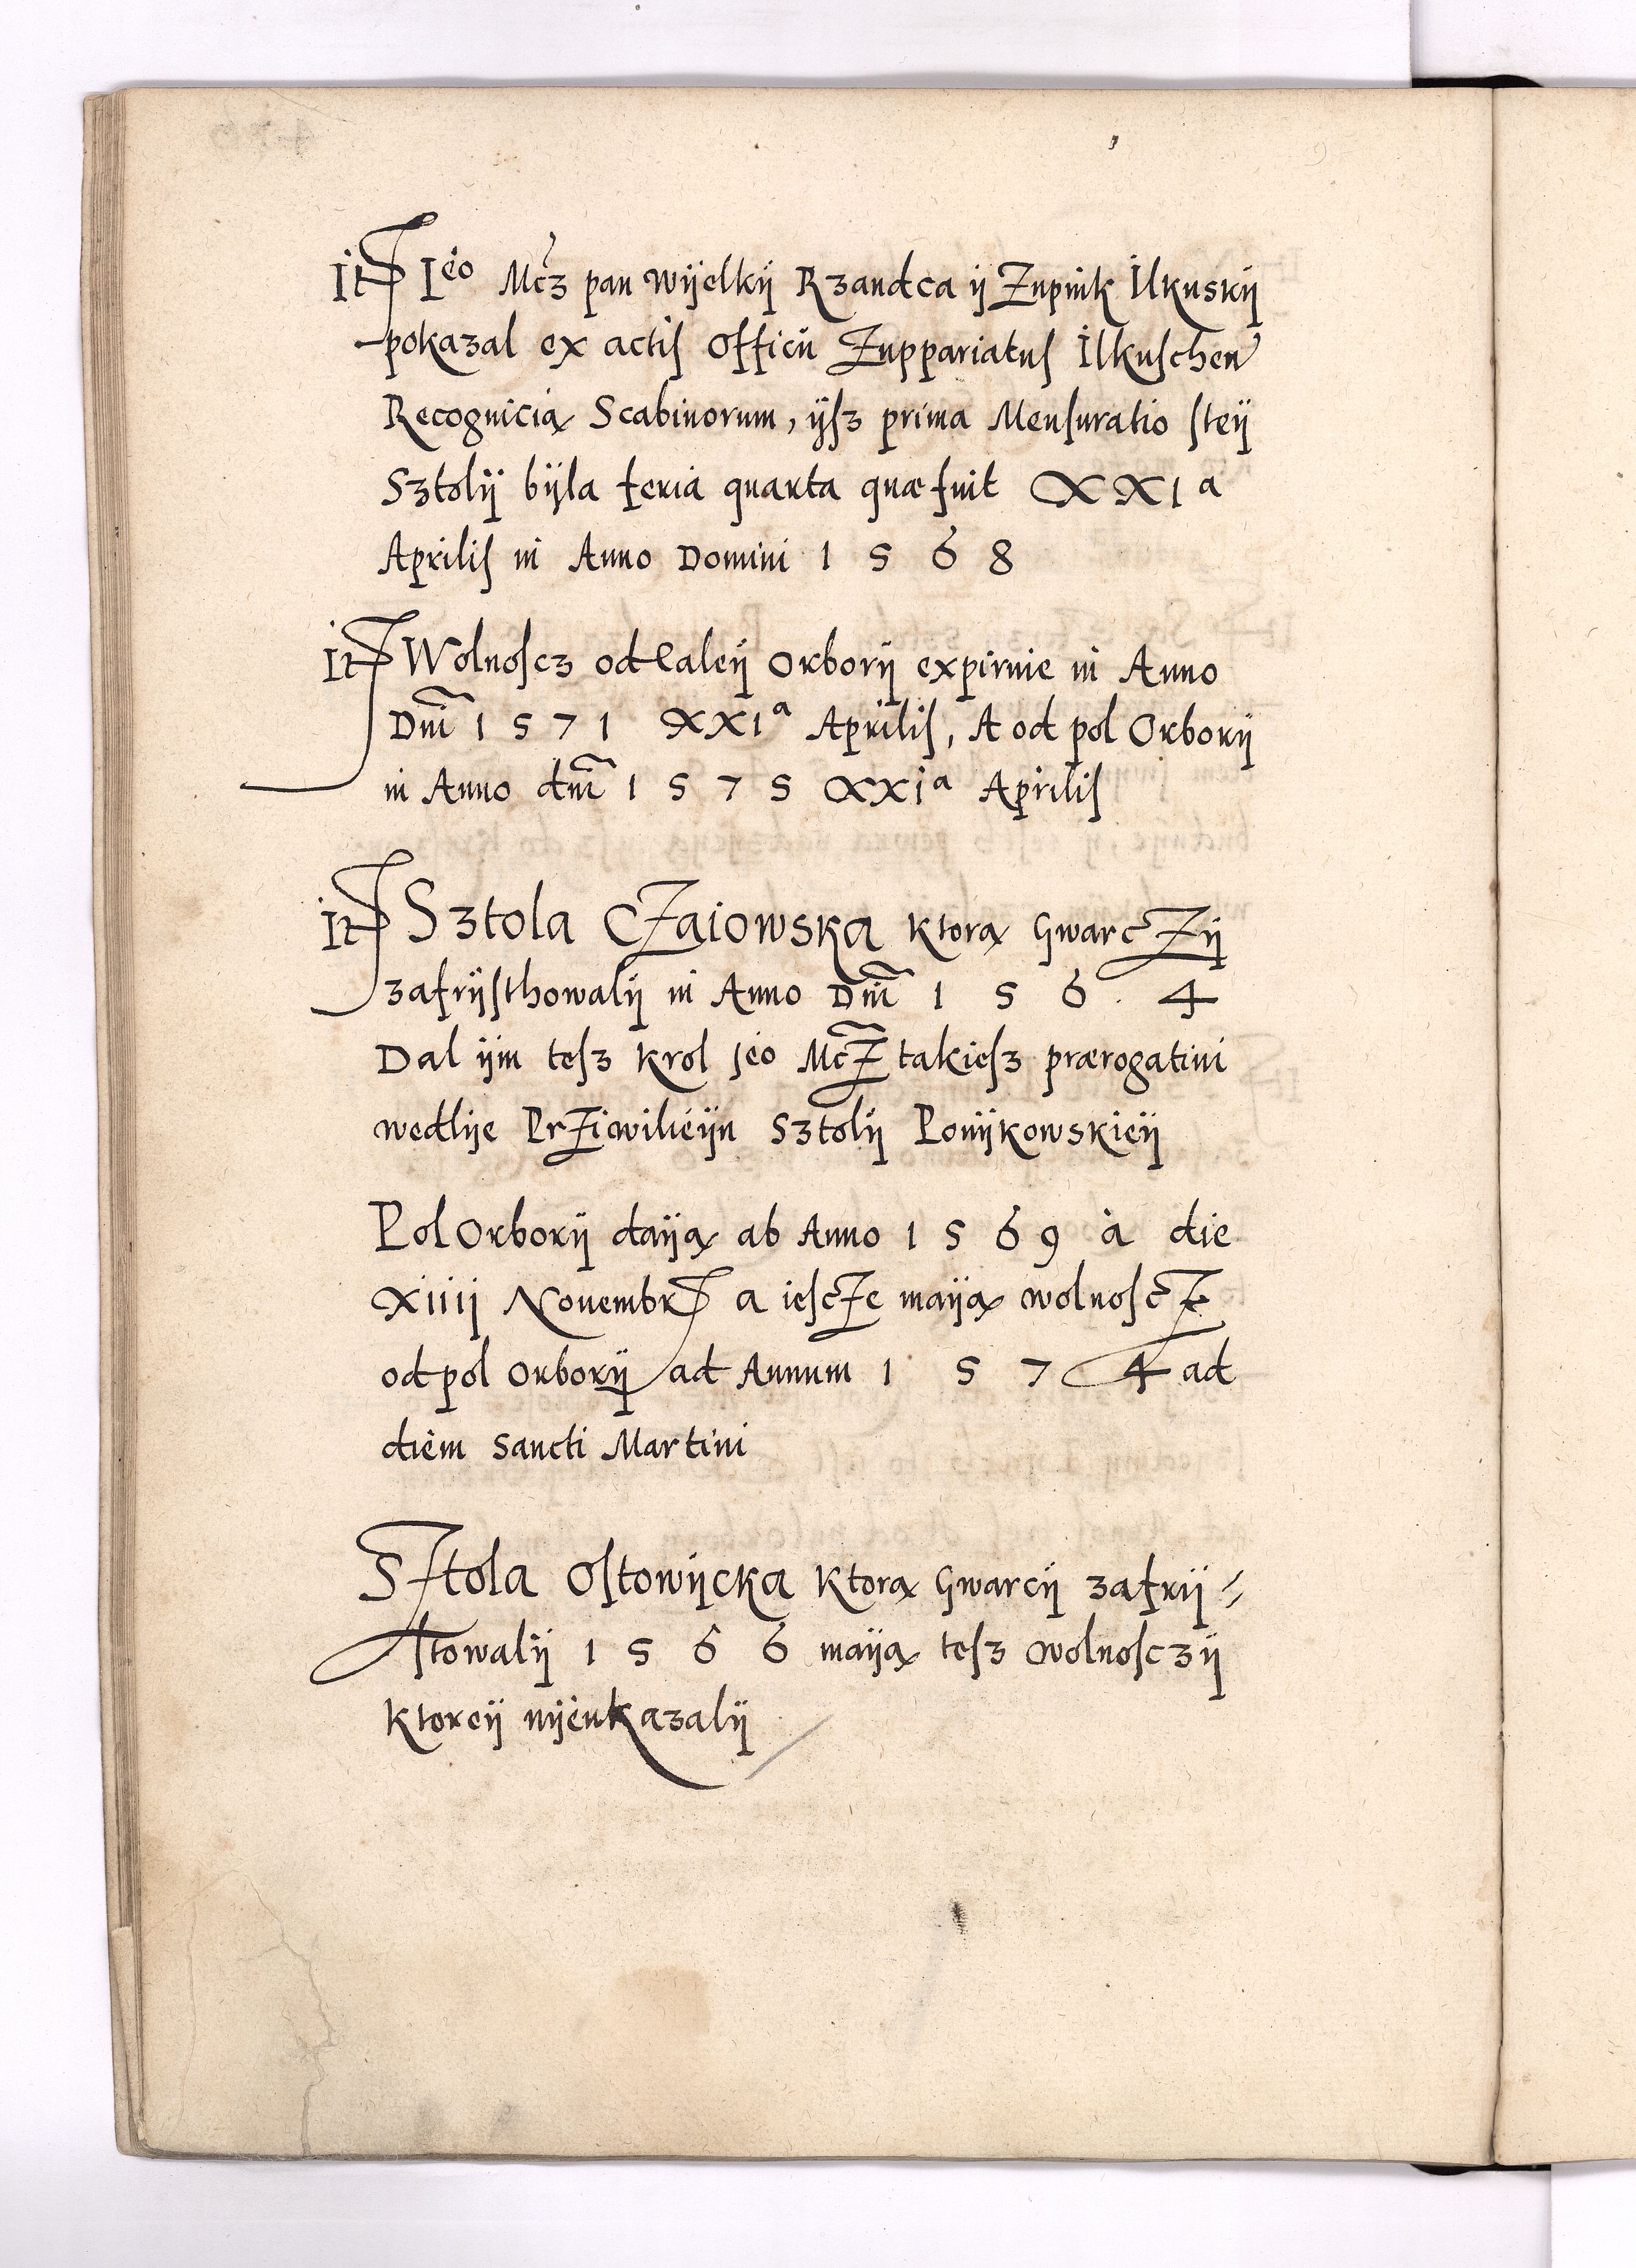 It Ieo Mcz pan wijelkij Rzandca ij Zupnik Ilkuskij
pokazal ex actis officii Zuppariatus Ilkuschen
Recognicią Scabinorum, ijsz prima Mensuratio steij
Sztolij bijla feria quarta quæ fuit XXI a
Aprilis in Anno Domini 1 5 6 8
It Wolnoscz od Caleij Orborij expirnie in Anno
Dni 1 5 7 1 XXI a Aprilis, A od pol Orborij
in Anno dni 1 5 7 5 XXI a Aprilis
It Sztola CZaiowska ktorą GwarcZij
zafrijsthowalij in Anno Dni 1 5 6 4
Dal ijm tesz krol Jeo McZ takiesz prærogatiui
wedlije PrZiwileijn Sztolij Ponijkowskieij
Pol Orborij daiją ab Anno 1 5 6 9 à die
Xiiij Nouembr a iescZe maiją wolnoscZ
od pol Orborij ad Annum 1 5 7 4 ad
diem Sancti Martini
SZtola Ostowijcka ktorą Gwarcij zafrij⸗
stowalij 1 5 6 6 maiją tesz wolnosczij
ktoreij nijeukazalij